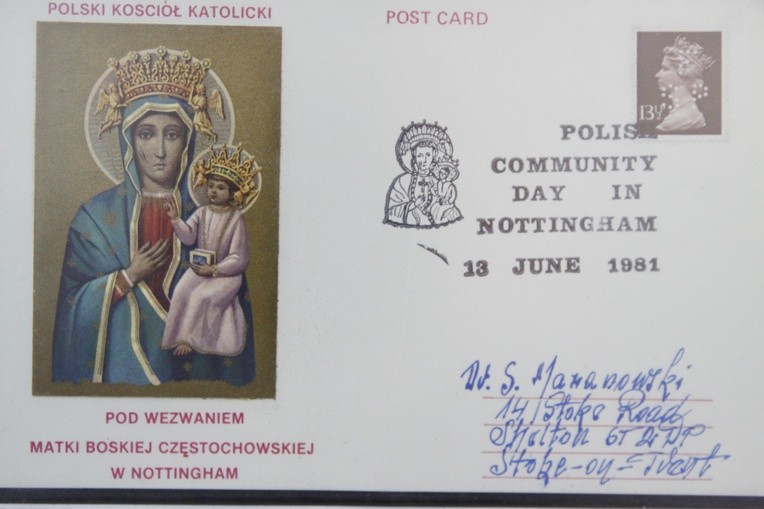 POLSKI KOSCIÓŁ KATOLICKI
POST CARD
13½
POLISH
COMMUNITY
DAY IN
NOTTINGHAM
13 JUNE 1981
POD WEZWANIEM
MATKI BOSKIEJ CZĘSTOCHOWSKIEJ
W NOTTINGHAM
Dr. S. Maranowski
14 Stoke Road
Shelton
Stoke-on-Trent